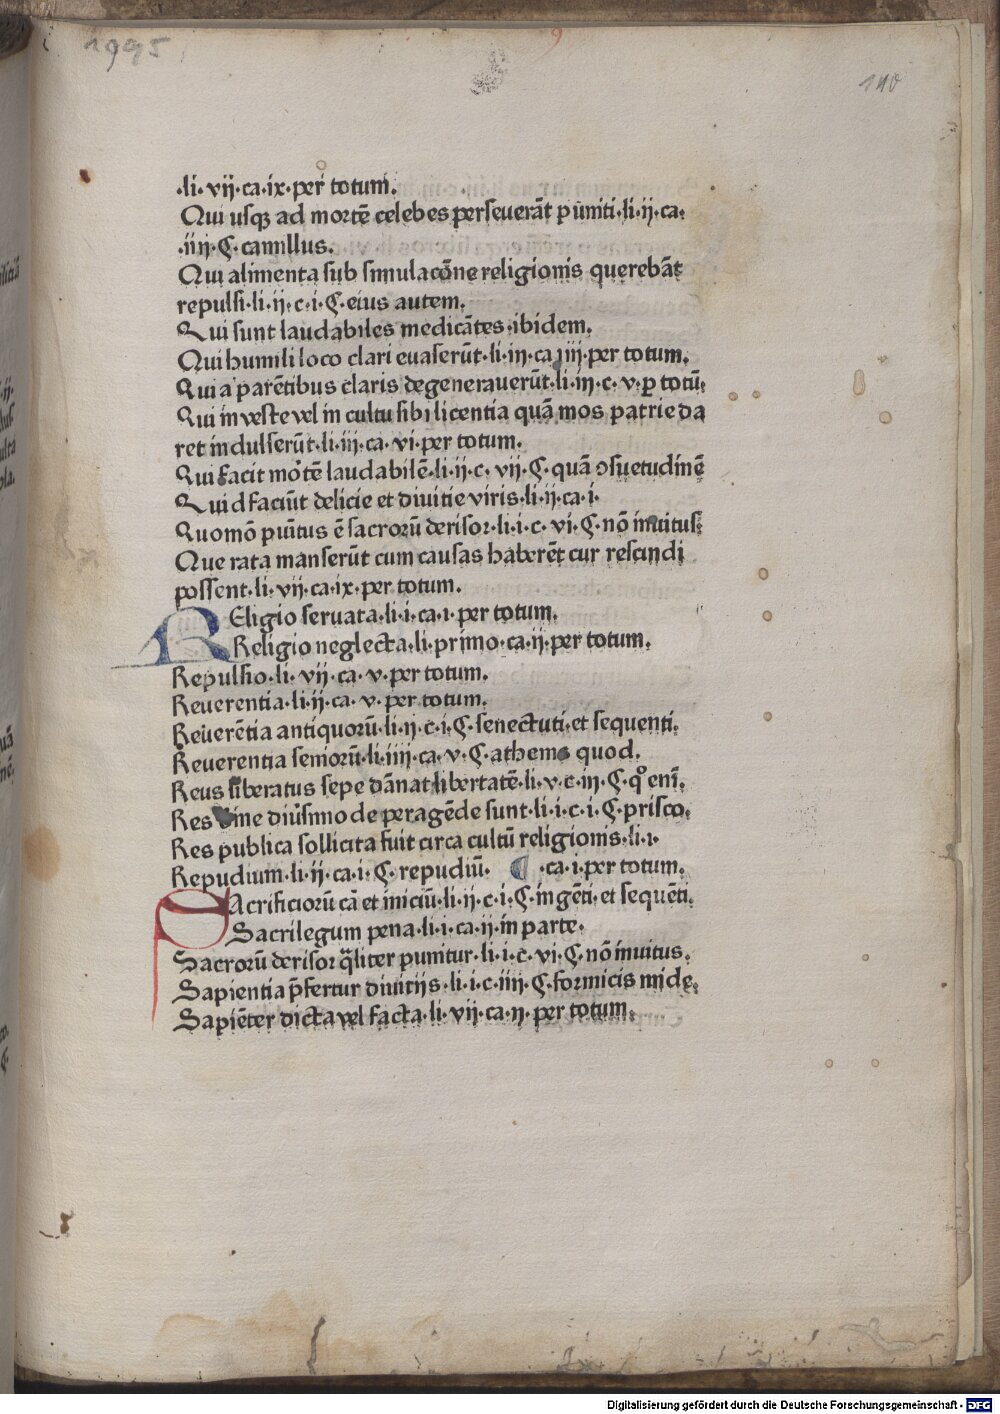 1995
9
110
·li·vij·ca·ix·per totum.
Qui usq; ad mortē celebes perseuerāt pūniti·li·ij·ca·
·iiij·ς·camillus.
Qui alimenta sub simulacōne religionis querebāt
repulsi·li·ij·c·i·ς·eius autem.
Qui sunt laudabiles medicātes·ibidem.
Qui humili loco clari euaserūt·li·iij·ca·iiij·per totum.
Qui a parētibus claris degenerauerūt·li·iij·c·v·p totū.
Qui in veste vel in cultu sibi licentia quā mos patrie da
ret indulserūt·li·iij·ca·vi·per totum.
Qui facit mortē laudabilē·li·ij·c·vij·ς·quā ɔsuetudinē
Quid faciūt delicie et diuitie viris·li·ij·ca·i·
Quomō pūitus ē sacrorū derisor·li·i·c·vi·ς·nō inuitus.
Que rata manserūt cum causas haberēt cur rescindi
possent·li·vij·ca·ix·per totum.
REligio seruata·li·i·ca·i·per totum.
Religio neglecta·li·primo·ca·ij·per totum.
Repulsio·li·vij·ca·v·per totum.
Reuerentia·li·ij·ca·v·per totum.
Reuerētia antiquorū·li·ij·c·i·ς·senectuti·et sequenti.
Reuerentia seniorū·li·iiij·ca·v·ς·athenis quod.
Reus liberatus sepe dānat libertatē·li·v·c·iij·ς·qo enī.
Res diuine diūsimo de peragēde sunt·li·i·c·i·ς·prisco.
Res publica sollicita fuit circa cultū religionis·li·i·
Repudium·li·ij·ca·i·ς·repudiū. ¶ ·ca·i·per totum.
SAcrificiorū cā et iniciū·li·ij·c·i·ς·ingēti·et sequēti.
Sacrilegum pena·li·i·ca·ij·in parte.
Sacrorū derisor qliter punitur·li·i·c·vi·ς·nō inuitus.
Sapientia p̄fertur diuitijs·li·i·c·iiij·ς·formicis mide.
Sapiēter dicta vel facta·li·vij·ca·ij·per totum.
Digitalisierung gefördert durch die Deutsche Forschungsgemeinschaft - DFG